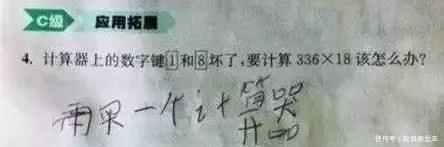 C级 应用拓展
4. 计算器上的数字键1和8坏了,要计算 336×18 该怎么办?
再买一个计算器
快传号